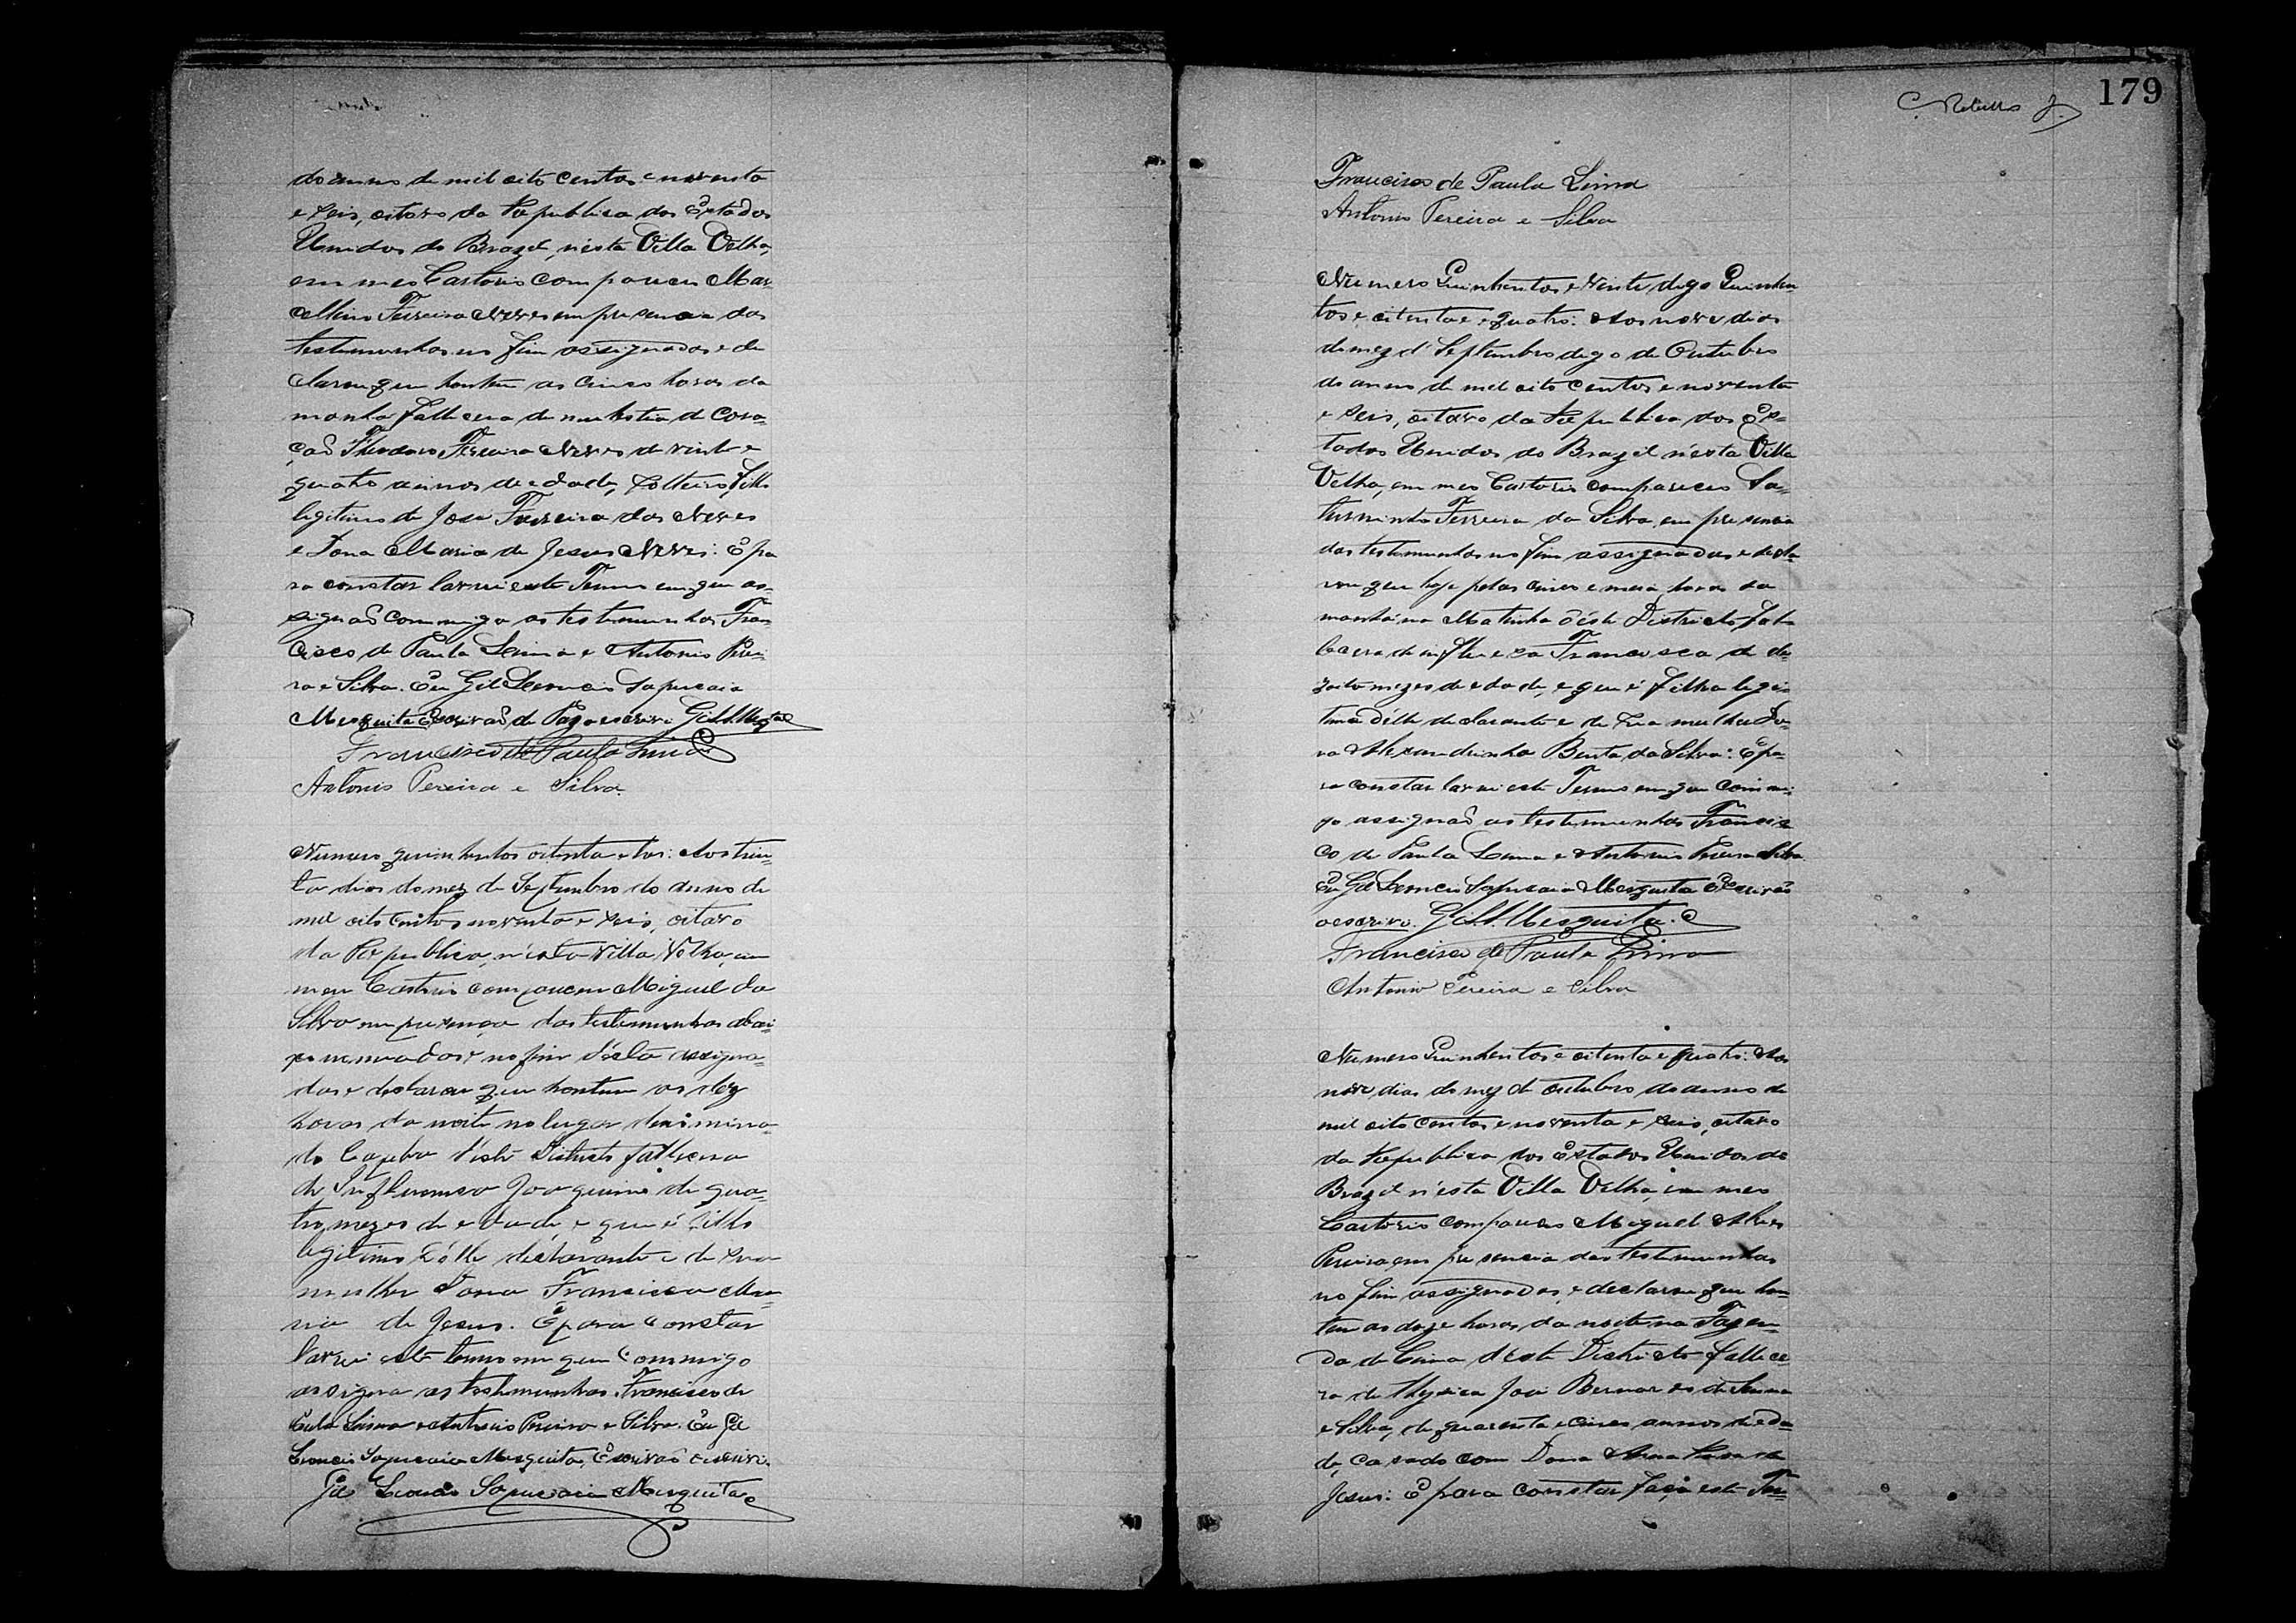 do anno de mil oito centos e noventa
e seis, oitavo da Republica dos Estados
Unidos do Brazil, n'esta Villa Velha,
em meo Cartorio compareceu Mar-
cellino Ferreira Neves em presencia das
testemunhas no fim assignadas e de
clarou que hontem as cinco horas da
manhã fallecera de molestia de cora-
ção Theodoro Ferreira Neves de vinte e
quatro annos de edade, solteiro, filho
legitimo de José Ferreira das Neves
e Dona Maria de Jesus Neves: E pa
ra constar lavrei este Termo em que as-
signaõ commigo as testemunhas Fran-
cisco de Paula Lima e Antonio Perei-
ra e Silva. Eu Gil Leoncio Sapucaia
Mesquita Escrivaõ de Paz o escrevi. Gil L. Mesqta
Francisco de Paula Lima
Antonio Pereira e Silva.
Numero quinhentos oitenta e tres: Aos trin-
ta dias do mez de Septembro do anno de
mil oito centos noventa e seis, oitavo
da Republica, n'esta Villa Velha, em
meu Cartorio compareceu Miguel da
Silva em presença das testemunhas abai-
xo nomeadas e no fim d'esta assigna-
das e declarou que hontem as dez
horas da noite no lugar denomina-
do d'este Districto fallecera
de Influenza Joaquim de qua-
tro mezes de edade, e que é filho
legitimo d'elle declarante e de sua
mulher Dona Francisca Ma-
ria de Jesus. E para constar
lavrei este termo em que commigo
assigna as testemunhas Francisco de
Paula Lima e Antonio Pereira e Silva. Eu Gil
Leoncio Sapucaia Mesquita, Escrivaõ o escrevi.
Gil Leoncio Sapucaia Mesquita
179
Francisco de Paula Lima
Antonio Pereira e Silva
Numero Quinhentos e Vinte digo Quinhen
tos e oitenta e quatro: Aos nove dias
do mez d' Septembro digo de Outubro
do anno de mil oito centos e noventa
e seis, oitavo da Republica dos Es-
tados Unidos do Brazil n'esta Villa
Velha, em meo Cartorio compareceo Sa-
turninho Ferreira da Silva, em presencia
das testemunhas no fim assignadas e decla
rou que hoje pelas cinco e meia horas da
manhã na Matinha d'este Districto, fal-
lecera de influenza Francisca de de-
zoito mezes de edade, e que é filha legi-
tima d'elle declarante e de sua mulher Do-
na Alexandrinha Benta da Silva: E pa-
ra constar lavrei este Termo em que commi-
go assignaõ as testemunhas Francis
co de Paula Lima e Antonio Pereira Silva.
Eu Gil Leoncio Sapucaia Mesquita Escrivaõ
o escrevi. Gil L. Mesquita.
Francisco de Paula Lima
Antonio Pereira e Silva
Numero Quinhentos e oitenta e quatro: Aos
nove dias do mez de outubro do anno de
mil oito centos e noventa e seis, oitavo
da Republica dos Estados Unidos do
Brazil n'esta Villa Velha, em meo
Cartorio compareceo Miguel Alves
Pereira em presencia das testemunhas
no fim assignadas, e declarou que hon-
tem as doze horas da noite na Fazen-
da de Cima d'este Districto fallece-
ra de Thysica José Bernardes de
e Silva, de quarenta e cinco annos de eda-
de, casado com Dona Anna de
Jesus: E para constar faço este Ter-